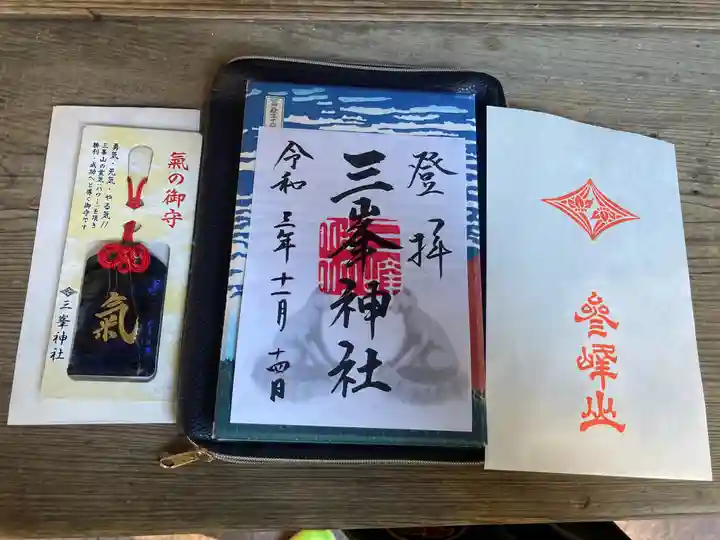 氣の御守
勇氣・元氣・やる氣!!
三峯山の霊気(パワー)を頂き
勝利・成功へと導く御守です
三峯神社
氣
登拝
三峯神社
令和三年十一月十四日
参峰山